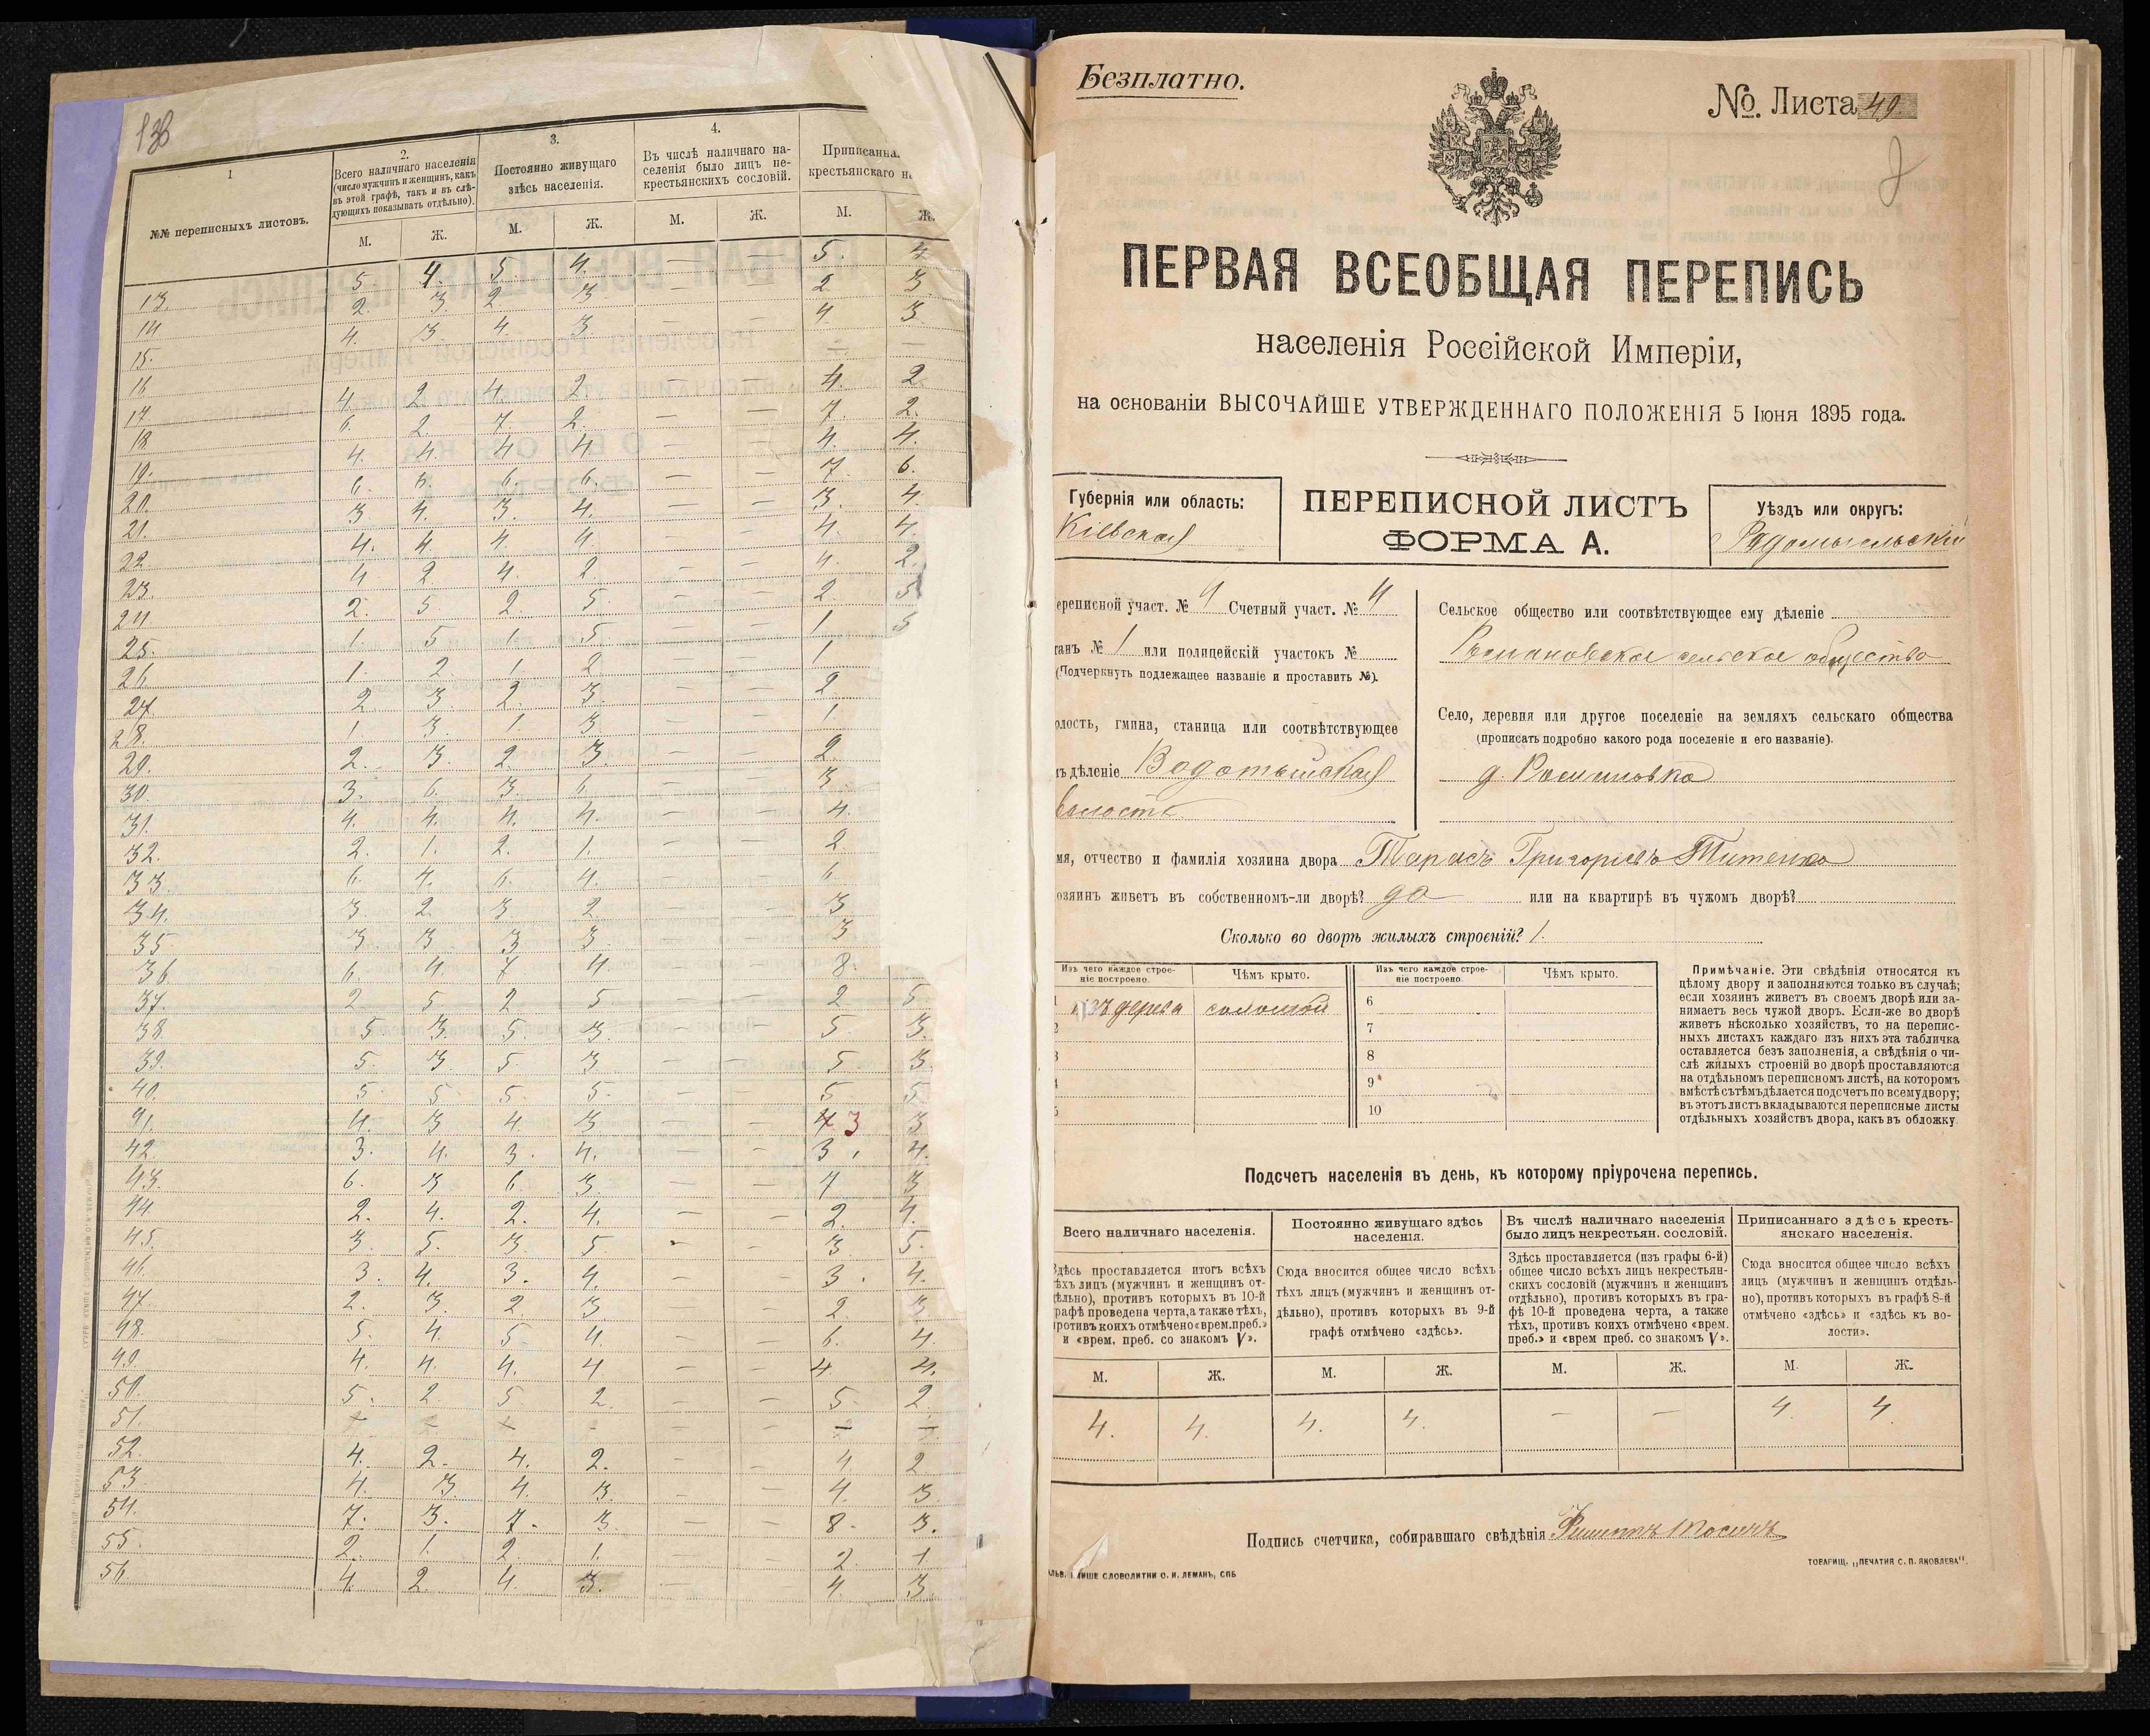 138
1
№№ переписныхъ листовъ.
2.
Всего наличнаго населенія
(число мужчинъ и женщинъ, какъ
въ этой графѣ, такъ и въ слѣ-
дующихъ показывать отдѣльно).
3.
Постоянно живущаго
здѣсь населенія.
4.
Въ числѣ наличнаго на-
селенія было лицъ не-
крестьянскихъ сословій.
Приписанна
крестьянскаго н
М. Ж. М. Ж. М. Ж. М. Ж.
13. 5 4. 5. 4. — — 5. 4
14 2. 3. 2. 3. — — 2 3.
15. 4. 3. 4. 3. — — 4. 3.
16 — —
17. 4. 2 4. 2 — — 4. 2.
18 6. 2. 7. 2. — — 7. 2.
19. 4. 4. 4 4. — — 4. 4.
20. 6. 6. 6. 6. — — 7. 6.
21. 3 4. 3. 4. — — 3. 4.
22 4. 4. 4. 4. — — 4. 4.
23. 4 2. 4. 2. — — 4. 2.
24 2. 5. 2. 5. — — 2. 5
25. 1. 5 1. 5. — — 1 5
26. 1. 2. 1. 2. — — 1
27. 2 3. 2. 3. — — 2
28. 1 3. 1. 3. — — 1.
29. 2. 3. 2. 3. — — 2.
30. 3. 6. 3. 6. — — 3.
31. 4. 4. 4. 4. — — 4.
32. 2. 1. 2. 1. — — 2
33. 6. 4. 6. 4. — — 6
34. 3. 2. 3 2. — — 3
35 3. 3. 3 3. — — 3
36. 6. 4. 7 4. — — 8.
37. 2 5 2 5 — — 2 5.
38. 5. 3. 5. 3. — — 5 3.
39. 5. 3 5. 3 — — 5 3.
40. 5. 5 5. 5. — — 5 5
41. 4. 3 4. 3 — — 4 3 3
42. 3. 4. 3. 4. — — 3. 4.
43. 6. 3 6. 3. — — 7 3
44. 2. 4. 2. 4. — — 2. 4.
45. 3. 5. 3. 5 - — 3. 5.
46. 3. 4. 3. 4. — — 3. 4.
47 2. 3. 2 3 — — 2 3
48. 5. 4. 5. 4. — — 6. 4
49. 4. 4. 4. 4 — — 4 4.
50. 5. 2 5 2 — — 5 2.
51. — —
52. 4. 2. 4. 2. — — 4 2
53 4. 3. 4. 3. — — 4. 3
54. 7. 3. 7. 3 — — 8. 3.
55. 2. 1. 2. 1. — 2. 1
56. 4. 2 4. 3. — 4. 3.
Безплатно.
№. Листа 49.
ПЕРВАЯ ВСЕОБЩАЯ ПЕРЕПИСЬ
населенія Россійской Имперіи,
на основаніи ВЫСОЧАЙШЕ УТВЕРЖДЕННАГО ПОЛОЖЕНІЯ 5 Іюня 1895 года.
Губернія или область:
Кіевская
ПЕРЕПИСНОЙ ЛИСТЪ
ФОРМА А.
Уѣздъ или округъ:
Радомысльскій
ереписной участ. № 4 Счетный участ. № 4
танъ № 1 или полицейскій участокъ №
(Подчеркнуть подлежащее названіе и проставить №).
олость, гмина, станица или соотвѣтствующее
ъ дѣленіе Водотыйская
волость.
Сельское общество или соотвѣтствующее ему дѣленіе
сельское общество
Село, деревня или другое поселеніе на земляхъ сельскаго общества
(прописать подробно какого рода поселеніе и его названіе).
д.
мя, отчество и фамилія хозяина двора Тарасъ Григорьевъ Титенко
озяинъ живетъ въ собственномъ-ли дворѣ? да или на квартирѣ въ чужомъ дворѣ?
Сколько во дворѣ жилыхъ строеній? 1.
Изъ чего каждое строе-
ніе построено.
Чѣмъ крыто.
Изъ чего каждое строе-
ніе построено.
Чѣмъ крыто.
изъ дерева соломой
6
7
8
9
10
Примѣчаніе. Эти свѣдѣнія относятся къ
цѣлому двору и заполняются только въ случаѣ;
если хозяинъ живетъ въ своемъ дворѣ или за-
нимаетъ весь чужой дворъ. Если-же во дворѣ
живетъ нѣсколько хозяйствъ, то на перепис-
ныхъ листахъ каждаго изъ нихъ эта табличка
оставляется безъ заполненія, а свѣдѣнія о чи-
слѣ жилыхъ строеній во дворѣ проставляются
на отдѣльномъ переписномъ листѣ, на которомъ
вмѣстѣ съ тѣмъ дѣлается подсчетъ по всему двору;
въ этотъ листъ вкладываются переписные листы
отдѣльныхъ хозяйствъ двора, какъ въ обложку.
Подсчетъ населенія въ день, къ которому пріурочена перепись.
Всего наличнаго населенія.
Здѣсь проставляется итогъ всѣхъ
ѣхъ лицъ (мужчинъ и женщинъ от-
ѣльно), противъ которыхъ въ 10-й
рафѣ проведена черта, а также тѣхъ,
ротивъ коихъ отмѣчено «врем. преб.»
и «врем. преб. со знакомъ V».
Постоянно живущаго здѣсь
населенія.
Сюда вносится общее число всѣхъ
тѣхъ лицъ (мужчинъ и женщинъ от-
дѣльно), противъ которыхъ въ 9-й
графѣ отмѣчено «здѣсь».
Въ числѣ наличнаго населенія
было лицъ некрестьян. сословій.
Здѣсь проставляется (изъ графы 6-й)
общее число всѣхъ лицъ некрестьян-
скихъ сословій (мужчинъ и женщинъ
отдѣльно), противъ которыхъ въ гра-
фѣ 10-й проведена черта, а также
тѣхъ, противъ коихъ отмѣчено «врем.
преб.» и «врем преб. со знакомъ V».
Приписаннаго здѣсь кресть-
янскаго населенія.
Сюда вносится общее число всѣхъ
лицъ (мужчинъ и женщинъ отдѣль-
но), противъ которыхъ въ графѣ 8-й
отмѣчено «здѣсь» и «здѣсь къ во-
лости».
М. Ж. М. Ж. М. Ж. М. Ж.
4. 4. 4. 4. — — 4. 4.
Подпись счетчика, собиравшаго свѣдѣнія
ТОВАРИЩ. „ПЕЧАТНЯ С. П. ЯКОВЛЕВА".
СЛОВОЛИТНИ О. И. ЛЕМАНЪ, СПБ